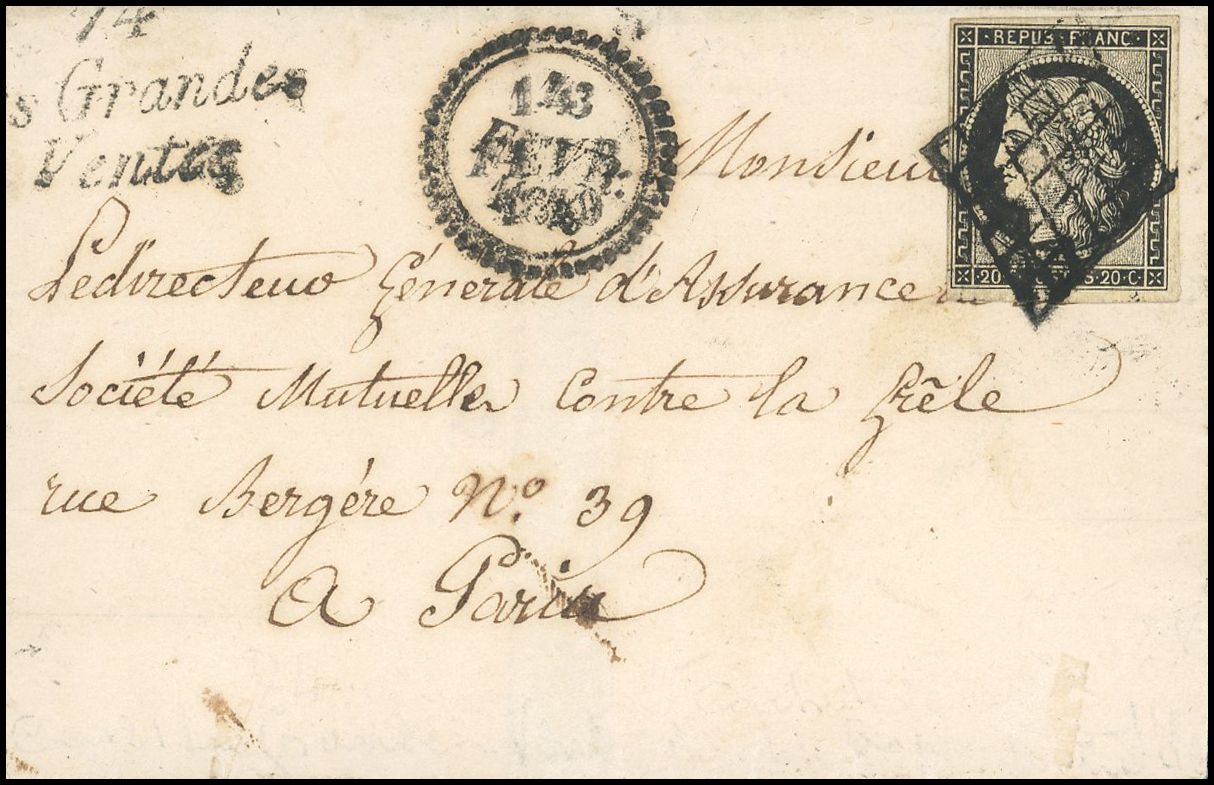 74
s Grandes
Ventes
FEVR.
REPUB. FRANC.
20 20 C
Monsieur
Le directeur Générale d'Assurance
Société Mutuelle Contre la Grêle
rue Bergére No. 39
A Paris